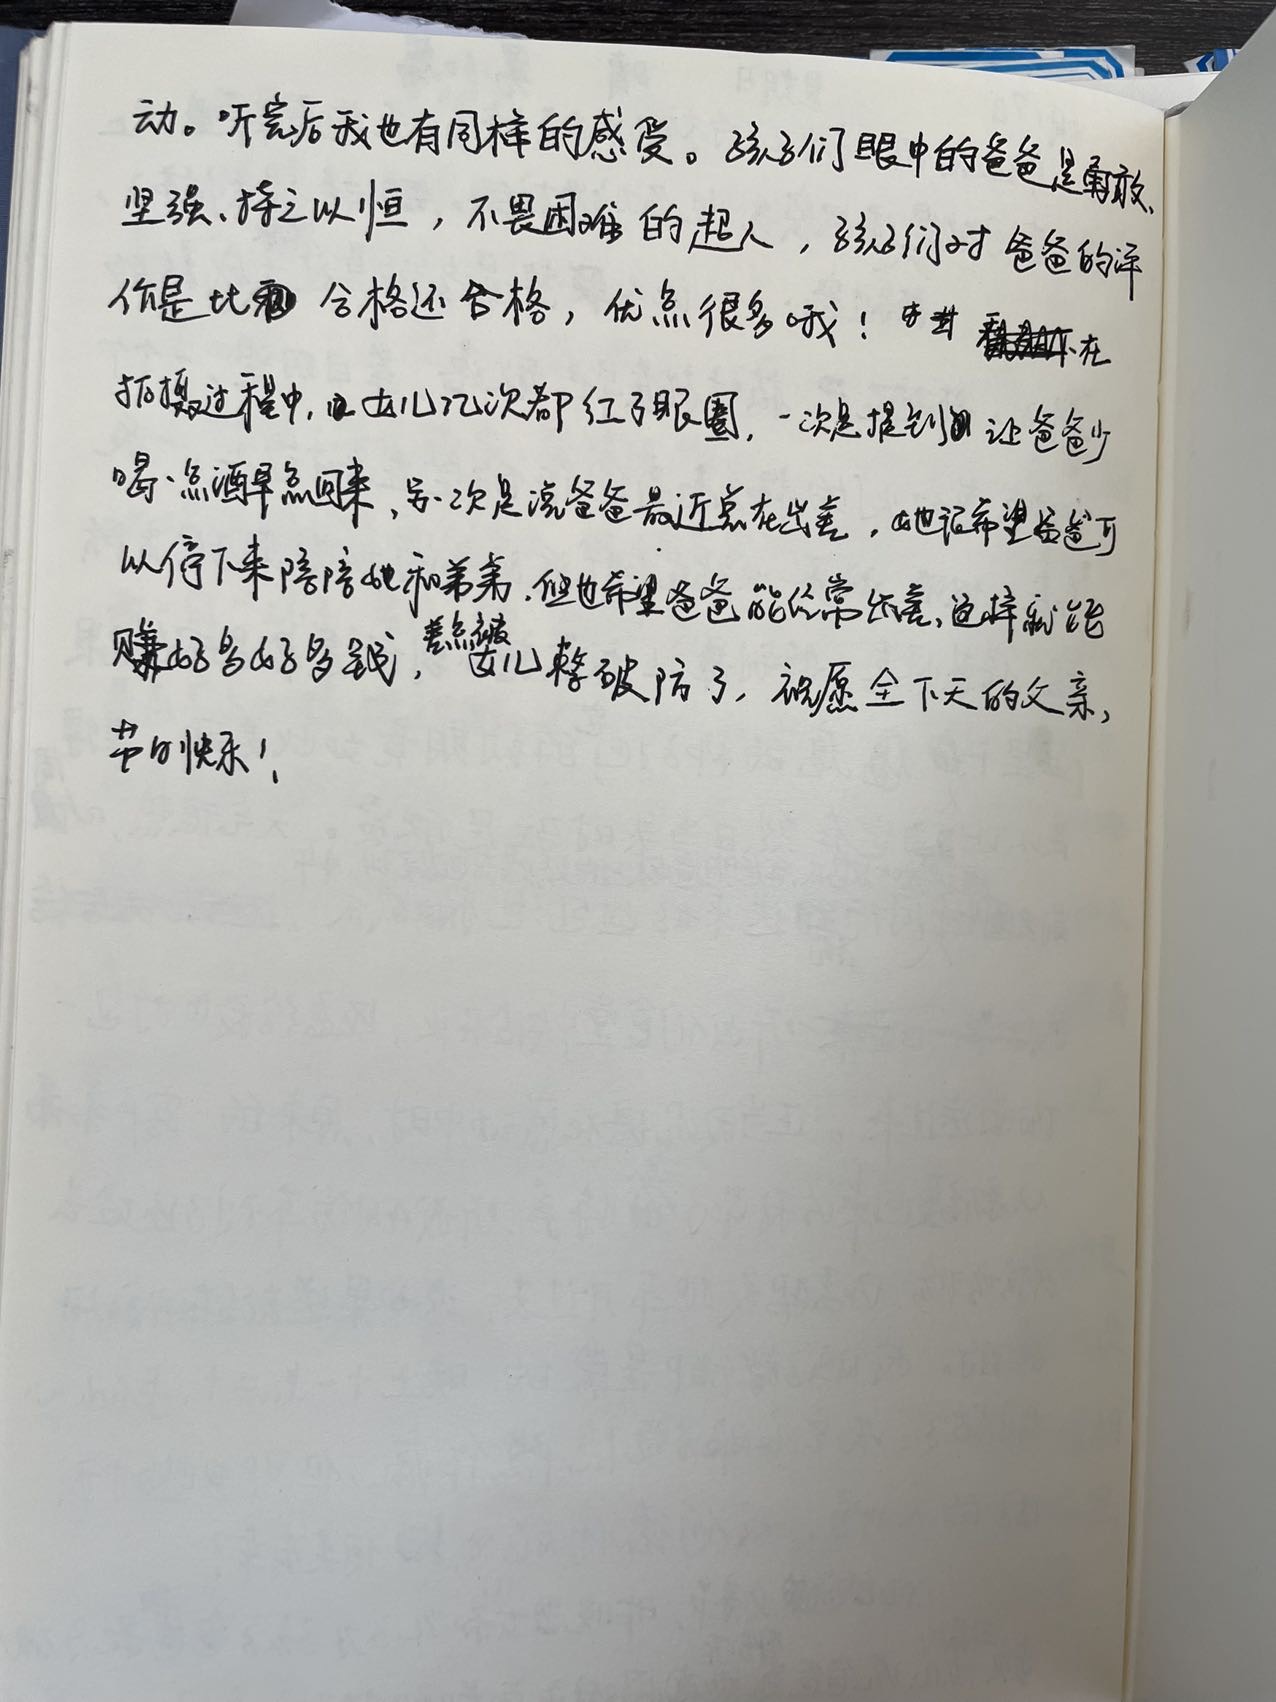 动。听完后我也有同样的感受。孩子们眼中的爸爸是勇敢、
坚强、持之以恒，不畏困难的超人，孩子们对爸爸的评
价是比合格还合格，优点很多哦！在
拍摄过程中，女儿几次都红了眼圈，一次是提到让爸爸少
喝点酒早点回来，另一次是说爸爸最近总在出差，她说希望爸爸可
以停下来陪陪她和弟弟，但也希望爸爸能经常出差，这样就能
赚好多好多钱，差点被女儿整破防了，祝愿全下天的父亲，
节日快乐！